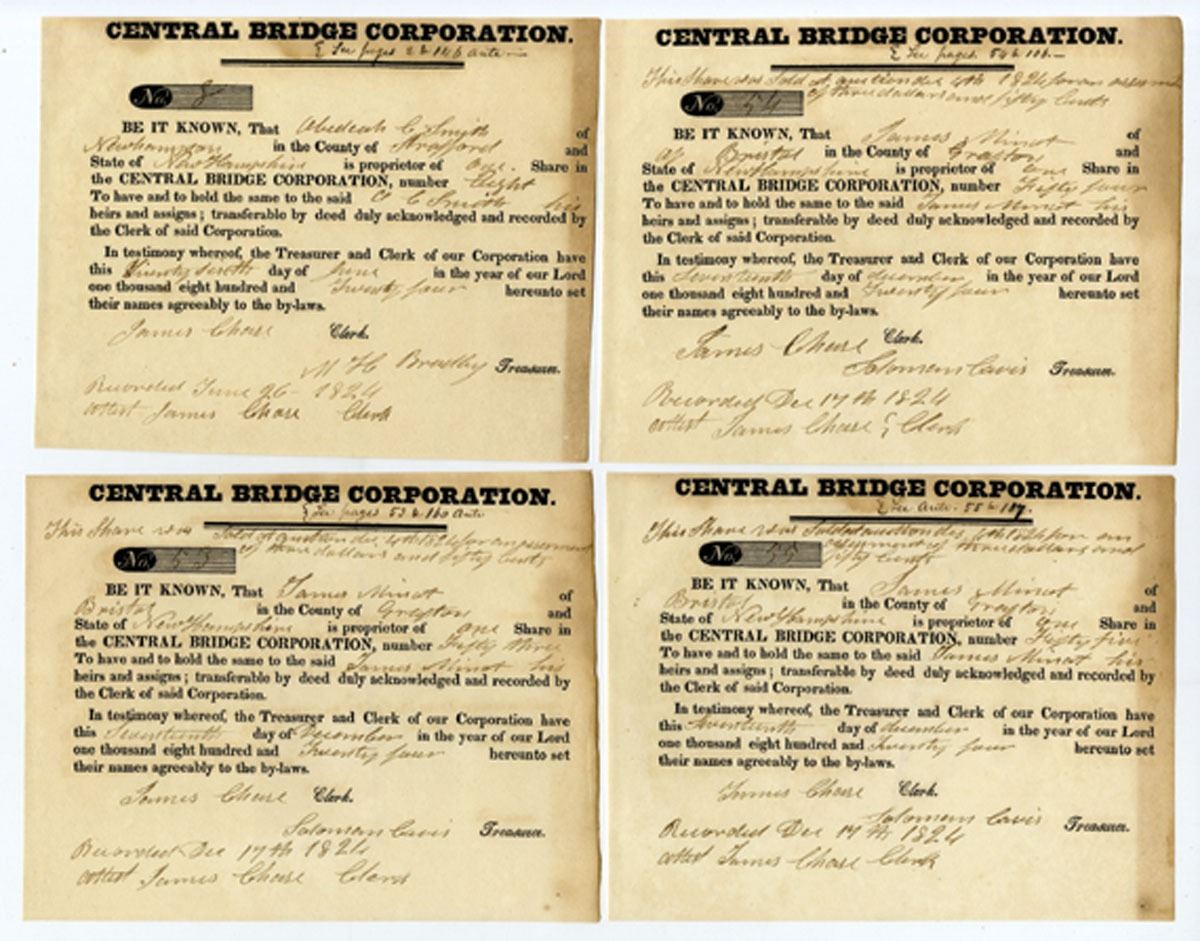 CENTRAL BRIDGE CORPORATION.
See pages 2 & 146 ante
No. 8
BE IT KNOWN, That Obediah C Smith of
Newhampton in the County of Strafford and
State of New Hampshire is proprietor of one Share in
the CENTRAL BRIDGE CORPORATION, number Eight
To have and to hold the same to the said O C Smith his
heirs and assigns; transferable by deed duly acknowledged and recorded by
the Clerk of said Corporation.
In testimony whereof, the Treasurer and Clerk of our Corporation have
this Twenty sixth day of June in the year of our Lord
one thousand eight hundred and Twenty four hereunto set
their names agreeably to the by-laws.
James Chase Clerk.
M H Bradley Treasurer.
Recorded June 26 - 1824
attest James Chase Clerk
CENTRAL BRIDGE CORPORATION.
See pages 54 &
This Share was Sold at auction dec 4th 1826 for an
No. 54 of three dollars and fifty Cents
BE IT KNOWN, That James Minot of
of Bristol in the County of Grafton and
State of New Hampshire is proprietor of one Share in
the CENTRAL BRIDGE CORPORATION, number Fifty four
To have and to hold the same to the said James Minot his
heirs and assigns; transferable by deed duly acknowledged and recorded by
the Clerk of said Corporation.
In testimony whereof, the Treasurer and Clerk of our Corporation have
this Seventeenth day of december in the year of our Lord
one thousand eight hundred and Twenty four hereunto set
their names agreeably to the by-laws.
James Chase Clerk.
Solomon Cavis Treasurer.
Recorded Dec 17th 1824
attest James Chase Clerk
CENTRAL BRIDGE CORPORATION.
See pages 53 & 160 Ante
This Share was Sold at auction dec 4th 1826 for an assessment
No. 53 of three dollars and fifty Cents
BE IT KNOWN, That James Minot of
Bristol in the County of Grafton and
State of New Hampshire is proprietor of one Share in
the CENTRAL BRIDGE CORPORATION, number Fifty three
To have and to hold the same to the said James Minot his
heirs and assigns; transferable by deed duly acknowledged and recorded by
the Clerk of said Corporation.
In testimony whereof, the Treasurer and Clerk of our Corporation have
this Seventeenth day of December in the year of our Lord
one thousand eight hundred and Twenty four hereunto set
their names agreeably to the by-laws.
James Chase Clerk.
Solomon Cavis Treasurer.
Recorded Dec 17th 1824
attest James Chase Clerk
CENTRAL BRIDGE CORPORATION.
See Ante. 55 &
This Share was Sold at auction dec 4th 1826 for an
assessment of three dollars and
No. 55 fifty Cents
BE IT KNOWN, That James Minot of
Bristol in the County of Grafton and
State of New Hampshire is proprietor of one Share in
the CENTRAL BRIDGE CORPORATION, number Fifty five
To have and to hold the same to the said James Minot his
heirs and assigns; transferable by deed duly acknowledged and recorded by
the Clerk of said Corporation.
In testimony whereof, the Treasurer and Clerk of our Corporation have
this Seventeenth day of december in the year of our Lord
one thousand eight hundred and Twenty four hereunto set
their names agreeably to the by-laws.
James Chase Clerk.
Solomon Cavis Treasurer.
Recorded Dec 17th 1824
attest James Chase Clerk